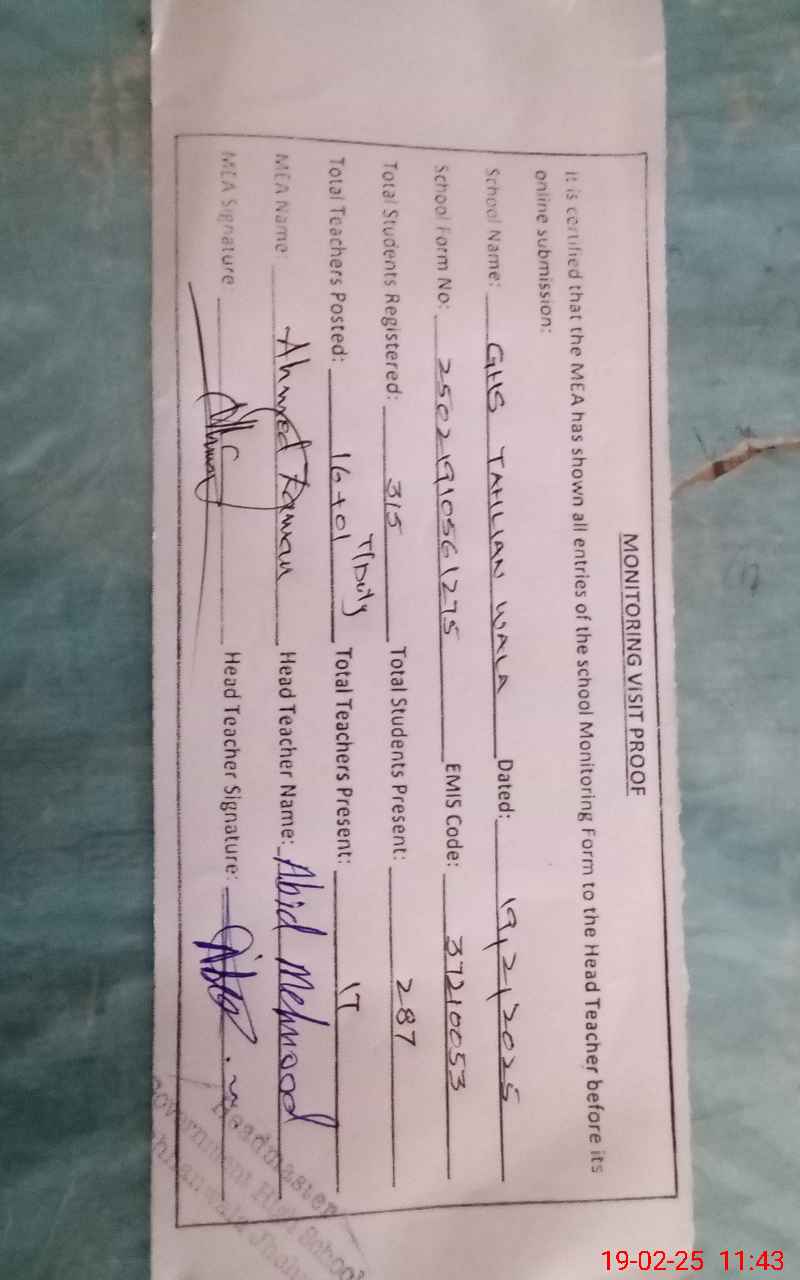 MONITORING VISIT PROOF
It is certified that the MEA has shown all entries of the school Monitoring Form to the Head Teacher before its
online submission:
School Name: GHS TAHLIAN WALA Dated: 19/2/2025
School Form No: 25021910561275 EMIS Code: 37210053
Total Students Registered: 315 Total Students Present: 287
Total Teachers Posted: 16+01 T/Duty Total Teachers Present: 17
MEA Name: Ahmed Head Teacher Name: Abid Mehmood
MEA Signature: Head Teacher Signature:
Headmaster
Government High School
19-02-25 11:43